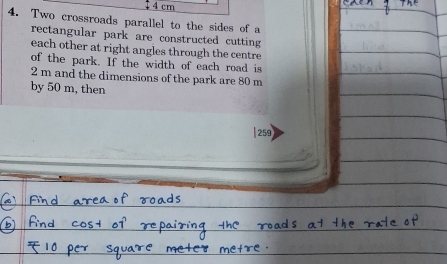 4 cm
each of the
4. Two crossroads parallel to the sides of a
rectangular park are constructed cutting
each other at right angles through the centre
of the park. If the width of each road is
2 m and the dimensions of the park are 80 m
by 50 m, then
259
(a) Find area of roads
(b) Find cost of repairing the roads at the rate of
₹10 per square metre.